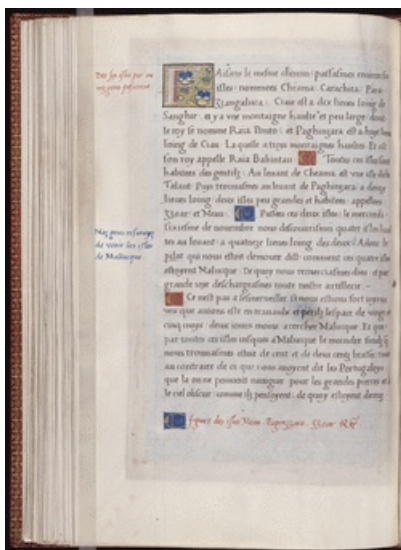 Des six isles par ou
noz gens passerent
Faisans le mesme chemin: passasmes entre huit
isles: nommees Cheama. Carachita. Para.
Zangalura. Ciau est a dix lieues loing de
Sanghir. et y a vne montaigne haulte et peu large. dont
le roy se nomme Raia Ponto: et Paghinzara. est a huyt lieues
loing de Ciau. La quelle a trois montaignes haultes. Et est
son roy appelle Raia Babintan Toutes ces isles sont
habitees des gentilz. Au leuant de Cheama. est vne isle dicte
Talant. Puys trouuasmes au leuant de Paghinzara. a douze
lieues loing. deux isles peu grandes et habitees. appellees
Zzoar. et Meau. Passees ces deux isles: le mercredi
sixiesme de nouembre nous descouurismes quatre isles haul
tes au leuant. a quatorze lieues loing des deux. Adonc le
pilot qui nous estoit demoure dist: comment ces quatre isles
estoyent Malucque. De quoy nous remerciasmes dieu. et par
grande ioye deschargeasmes toute nostre artillerie.
Noz gens resiouyz
de veoir les isles
de Mallucque
Ce n'est pas a s'esmerueiller si nous estions fort ioyeux
veu que auions este en trauaulx et perilz l'espace de vingt et
cinq moys: deux iours moins a cercher Malucque. Et que
par toutes ces isles iusques a Malucque le moindre fondz q̃
nous trouuasmes estoit de cent et de deux cens brasses. tout
au contraire de ce que nous auoyent dit les Portugaloys
que la on ne pouuoit nauiguer pour les grandes pierres et
le ciel obscur: comme ilz pensoyent. de quoy estoyent
figure des isles Meau. Paginzara. Zzoar